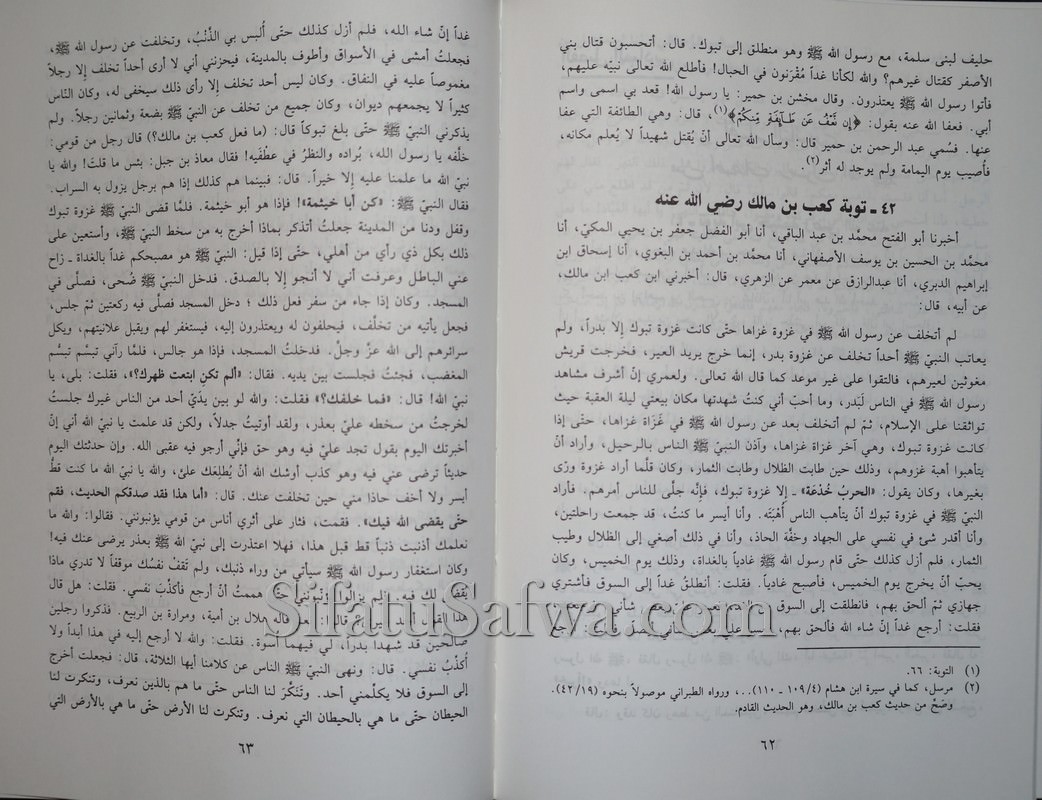 حليف لبنى سلمة، مع رسول الله ﷺ وهو منطلق إلى تبوك. قال: أتحسبون قتال بني
الأصفر كقتال غيرهم؟ والله لكأنا غداً مُقْرَنون في الحبال! فأطلع الله تعالى نبيّه عليهم،
فأتوا رسول الله ﷺ يعتذرون. وقال مخشن بن حمير: يا رسول الله! قعد بي اسمى واسم
أبي. فعفا الله عنه بقول: ﴿إِن نَّعْفُ عَن طَآئِفَةٍ مِّنكُمْ﴾(١)، قال: وهي الطائفة التي عفا
عنها. فسُمي عبد الرحمن بن حمير قال: وسأل الله تعالى أنْ يُقتل شهيداً لا يُعلم مكانه،
فأُصيب يوم اليمامة ولم يوجد له أثر(٢).
٤٢ ـ توبة كعب بن مالك رضي الله عنه
أخبرنا أبو الفتح محمّد بن عبد الباقي، أنا أبو الفضل جعفر بن يحيى المكيّ، أنا
محمّد بن الحسين بن يوسف الأصفهاني، أنا محمّد بن أحمد بن البغوي، أنا إسحاق ابن
إبراهيم الدبري، أنا عبدالرازق عن معمر عن الزهري، قال: أخبرني ابن كعب ابن مالك،
عن أبيه، قال:
لم أتخلف عن رسول الله ﷺ في غزوة غزاها حتّى كانت غزوة تبوك إلا بدراً، ولم
يعاتب النبيّ ﷺ أحداً تخلف عن غزوة بدر، إنما خرج يريد العير، فخرجت قريش
مغوثين لعيرهم، فالتقوا على غير موعد كما قال الله تعالى. ولعمري إنّ أشرف مشاهد
رسول الله ﷺ في الناس لَبَدر، وما أحبّ أني كنتُ شهدتها مكان بيعتي ليلة العقبة حيث
تواثقنا على الإسلام، ثمّ لم أتخلف بعد عن رسول الله ﷺ في غَزَاة غزاها، حتّى إذا
كانت غزوة تبوك، وهي آخر غزاة غزاها، وآذن النبيّ ﷺ الناس بالرحيل، وأراد أنْ
يتأهبوا أهبة غزوهم، وذلك حين طابت الظلال وطابت الثمار، وكان قلّما أراد غزوة ورّى
بغيرها، وكان يقول: «الحربُ خُدْعَة» ـ إلا غزوة تبوك، فإنّه جلّى للناس أمرهم. فأراد
النبيّ ﷺ في غزوة تبوك أنْ يتأهب الناس أُهْبَته. وأنا أيسر ما كنتُ، قد جمعت راحلتين،
وأنا أقدر شئ في نفسي على الجهاد وخفّة الحاذ، وأنا في ذلك أصغي إلى الظلال وطيب
الثمار، فلم أزل كذلك حتّى قام رسول الله ﷺ غادياً بالغداة، وذلك يوم الخميس، وكان
يحبّ أنْ يخرج يوم الخميس، فأصبح غادياً. فقلت: أنطلقُ غداً إلى السوق فأشتري
جهازي ثمّ ألحق بهم، فانطلقت إلى السوق
فقلت: أرجع غداً إنّ شاء الله فألحق بهم،
(١) التوبة: ٦٦.
(٢) مرسل، كما في سيرة ابن هشام (١٠٩/٤ ـ ١١٠)..، ورواه الطبراني موصولاً بنحوه (٤٢/١٩).
وصَحّ من حديث كعب بن مالك، وهو الحديث القادم.
٦٢
غداً إنّ شاء الله، فلم أزل كذلك حتّى أُلبس بي الذَّنْبُ، وتخلفت عن رسول الله ﷺ،
فجعلتُ أمشى في الأسواق وأطوف بالمدينة، فيحزنني أني لا أرى أحداً تخلف إلا رجلاً
مغموصاً عليه في النفاق. وكان ليس أحد تخلف إلا رأى ذلك سيخفى له، وكان النّاس
كثيراً لا يجمعهم ديوان، وكان جميع من تخلف عن النبيّ ﷺ بضعة وثمانين رجلاً. ولم
يذكرني النبيّ ﷺ حتّى بلغ تبوكاً قال: (ما فعل كعب بن مالك؟) قال رجل من قومي:
خلّفه يا رسول الله، بُراده والنظرُ في عطْفَيه! فقال معاذ بن جبل: بئس ما قلت! والله يا
نبيّ الله ما علمنا عليه إلا خيراً. قال: فبينما هم كذلك إذا هم برجل يزول به السراب.
فقال النبيّ ﷺ: «كن أبا خيثمة»! فإذا هو أبو خيثمة. فلمّا قضى النبيّ ﷺ غزوة تبوك
وقفل ودنا من المدينة جعلتُ أتذكر بماذا أخرج به من سخط النبيّ ﷺ، وأستعين على
ذلك بكل ذي رأي من أهلي، حتّى إذا قيل: النبيّ ﷺ هو مصبحكم غداً بالغداة ـ زاح
عني الباطل وعرفت أني لا أنجو إلا بالصدق. فدخل النبيّ ﷺ ضُحى، فصلّى في
المسجد. وكان إذا جاء من سفر فعل ذلك ؛ دخل المسجد فصلّى فيه ركعتين ثمّ جلس،
فجعل يأتيه من تخلّف، فيحلفون له ويعتذرون إليه، فيستغفر لهم ويقبل علانيتهم، ويكل
سرائرهم إلى الله عزّ وجلّ. فدخلتُ المسجد، فإذا هو جالس، فلمّا رآني تبسّم تبسُّم
المغضب، فجئتُ فجلست بين يديه. فقال: «ألم تكن ابتعت ظهرك؟»، فقلت: بلى، يا
نبيّ الله! قال: «فما خلفك؟» فقلت: والله لو بين يدَيْ أحد من الناس غيرك جلستُ
لخرجتُ من سخطه عليّ بعذر، ولقد أوتيتُ جدلاً، ولكن قد علمت يا نبيّ الله أني إنّ
أخبرتك اليوم بقول تجد عليّ فيه وهو حق فإنّي أرجو فيه عقبى الله. وإن حدثتك اليوم
حديثاً ترضى عني فيه وهو كذب أوشك الله أنْ يُطلِعَك علىّ، والله يا نبيّ الله ما كنت قطُّ
أيسر ولا أخف حاذا مني حين تخلفت عنك. قال: «أما هذا فقد صدقكم الحديث، فقم
حتّى يقضى الله فيك». فقمت، فثار على أثري أناس من قومي يؤنبونني. فقالوا: والله ما
نعلمك أذنبت ذنباً قط قبل هذا، فهلا اعتذرت إلى نبيّ الله ﷺ بعذر يرضى عنك فيه!
وكان استغفار رسول الله ﷺ سيأتي من وراء ذنبك، ولم تَقِفْ نفسُك موقفاً لا تدري ماذا
يُقضى لك فيه. فلم يزالوا يُؤنِّبُونني حتّى هممتُ أنْ أرجع فأكذّبَ نفسي. فقلت: هل قال
هذا القول أحد غيري؟ قالوا: نعم قاله هلال بن أمية، ومرارة بن الربيع. فذكروا رجلين
صالحين قد شهدا بدراً، لي فيهما أسوة. فقلت: والله لا أرجع إليه في هذا أبداً ولا
أُكذّبُ نفسي. قال: ونهى النبيّ ﷺ الناس عن كلامنا أيها الثلاثة، قال: فجعلت أخرج
إلى السوق فلا يكلّمني أحد. وتَنَكّرَ لنا الناس حتّى ما هم بالذين نعرف، وتنكرت لنا
الحيطان حتّى ما هي بالحيطان التي نعرف. وتنكرت لنا الأرض حتّى ما هي بالأرض التي
٦٣
SifatuSafwa.com